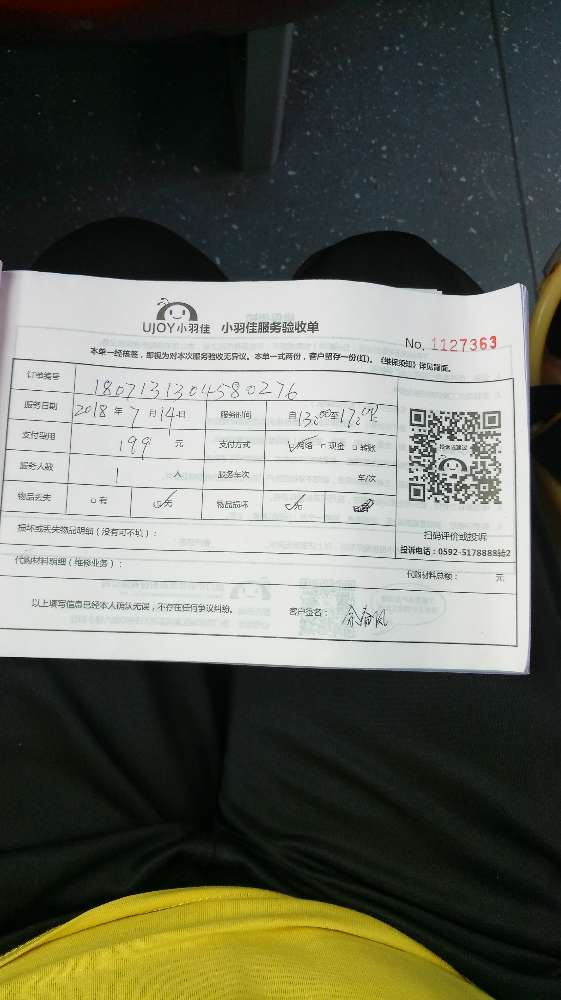 UJOY小羽佳 小羽佳服务验收单
No. 1127363
本单一经核签，即视为对本次服务验收无异议。本单一式两份，客户留存一份(红)。《维保须知》详见背面。
订单编号 1807131304580276
服务日期 2018 年 7 月 14 日 服务时间 自 13:00 至 17:00
支付费用 199 元 支付方式 ☑网络 □现金 □转账
服务人数 1 人 服务车次 车/次
物品丢失 □有 ☑无 物品损坏 ☑无
扫码评价或投诉
投诉电话：0592-5178888转2
损坏或丢失物品明细（没有可不填）：
代购材料明细（维修业务）： 代购材料总额： 元
以上填写信息已经本人确认无误，不存在任何争议纠纷。 客户签名：